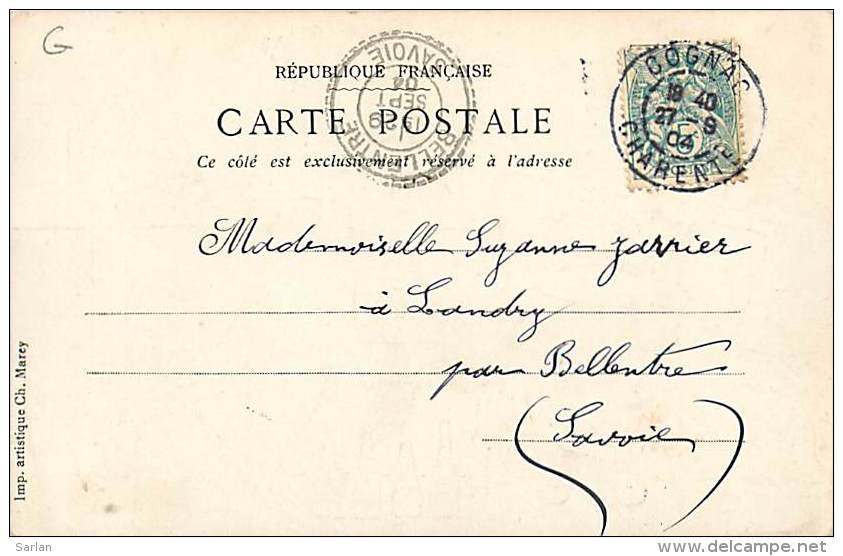 G
RÉPUBLIQUE FRANÇAISE
CARTE POSTALE
Ce côté est exclusivement réservé à l'adresse
BELLENTRE
SAVOIE
29
SEPT
04
COGNAC
18 40
27 - 9
04
CHARENTE
Mademoiselle Suzanne Jarrier
à Landry
par Bellentre
(Savoie)
Imp. artistique Ch. Marey
Sarlan
delcampe.net